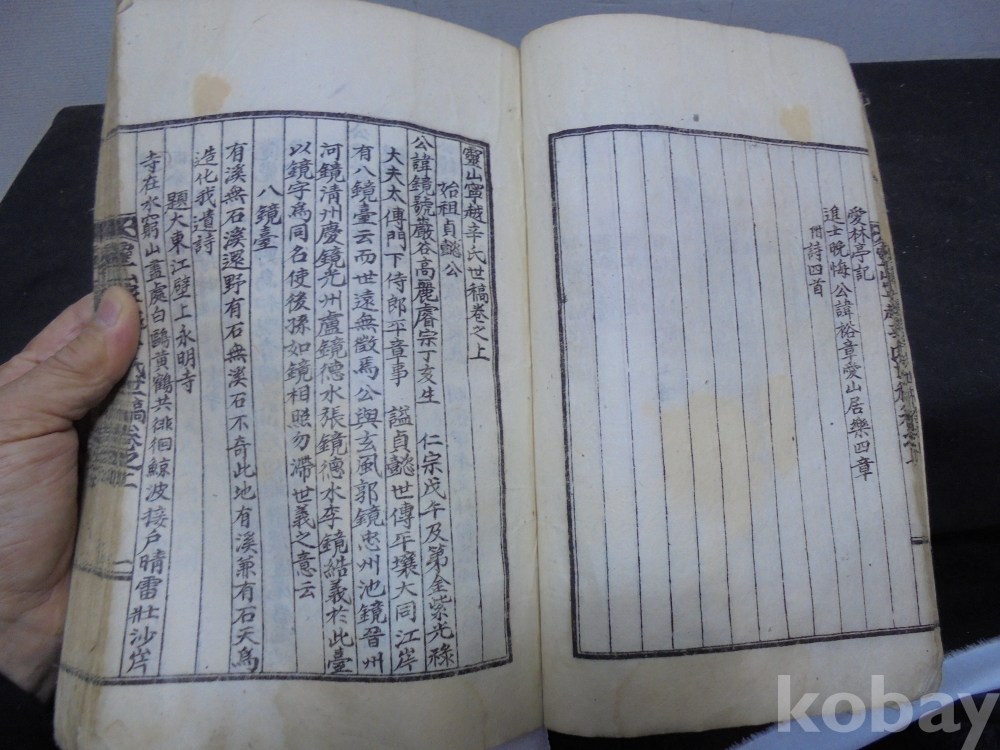 愛林亭記
進士晩悔公諱裕章愛山居樂四章
附詩四首
靈山寧越辛氏世稿卷之上
始祖貞懿公
公諱鏡號巖谷高麗睿宗丁亥生 仁宗戊午及第金紫光祿
大夫太傅門下侍郎平章事 謚貞懿世傳平壤大同江岸
有八鏡臺云而世遠無徵焉公與玄風郭鏡忠州池鏡晉州
河鏡清州慶鏡光州盧鏡德水張鏡德水李鏡結義於此臺
以鏡字爲同名使後孫如鏡相照勿滯世義之意云
八鏡臺
有溪無石溪還野有石無溪石不奇此地有溪兼有石天爲
造化我遺詩
題大東江壁上永明寺
寺在水窮山盡處白鷗黃鶴共徘徊鯨波接戶晴雷壯沙岸
世稿卷之上
一
kobay